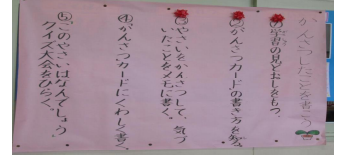 かんさつしたことを書こう
①学習の見とおしをもつ。
②かんさつカードの書き方を知る
③やさいをかんさつして、気づ
いたことをメモに書く。
④かんさつカードにくわしく書く。
⑤このやさいはなんでしょう
クイズ大会をひらく。